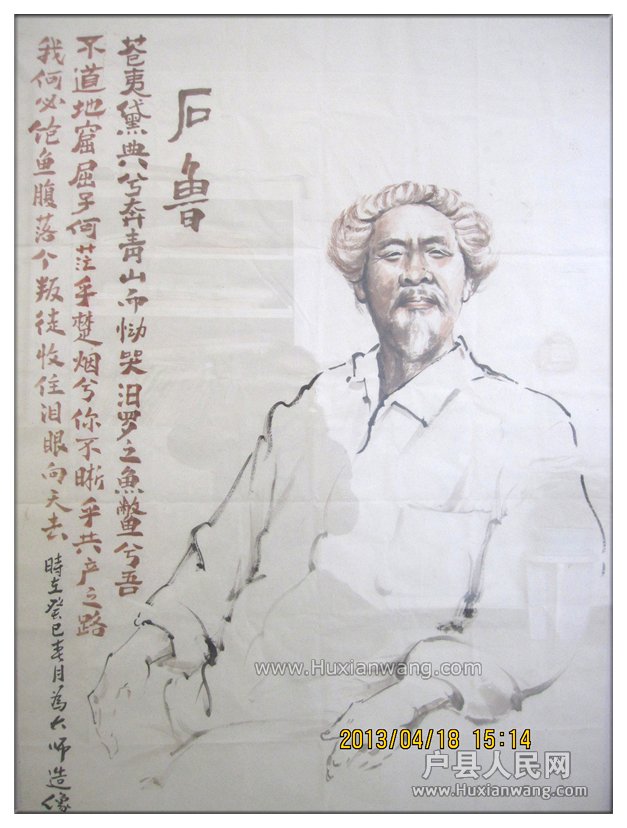 石鲁
苍夷黛典兮奔青山而恸哭汨罗之魚鳖兮吾
不道地窟屈子何茫乎楚烟兮你不晰乎共产之路
我何必饱鱼腹落个叛徒收住泪眼向天去
時在癸巳春月為大师造像
www.Huxianwang.com
2013/04/18 15:14
户县人民网
www.Huxianwang.com